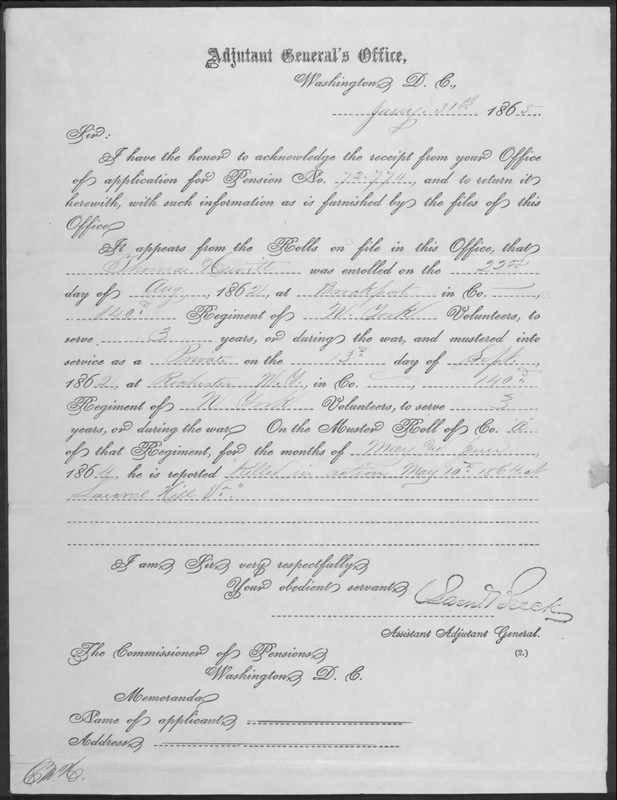 Adjutant General's Office,
Washington, D. C.,
Jany. 31st 1865
Sir:
I have the honor to acknowledge the receipt from your Office
of application for Pension No. 72.770, and to return it
herewith, with such information as is furnished by the files of this
Office.
It appears from the Rolls on file in this Office, that
Thomas was enrolled on the 22nd
day of Aug, 1862, at Brockport in Co. —,
140th Regiment of N. York Volunteers, to
serve 3 years, or during the war, and mustered into
service as a Private on the 13th day of Sept.,
1862, at Rochester N.Y., in Co. —, 140th
Regiment of N York Volunteers, to serve 3
years, or during the war. On the Muster Roll of Co. A
of that Regiment, for the months of May and June,
1864, he is reported Killed in action May 10th 1864 at
Laurel Hill Va
I am, Sir, very respectfully,
Your obedient servant,
Saml Breck
Assistant Adjutant General.
(2.)
The Commissioner of Pensions,
Washington, D. C.
Memoranda
Name of applicant,
Address,